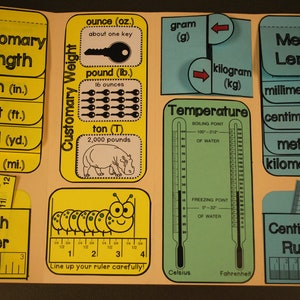 tomary
ngth
(in.)
(ft.)
(yd.)
(mi.)
er
Customary Weight
ounce (oz.)
about one key
pound (lb.)
16 ounces
ton (T)
2,000 pounds
1 2 3 4
Line up your ruler carefully!
gram
(g)
kilogram
(kg)
Temperature
BOILING POINT
100° - 212°
OF WATER
FREEZING POINT
0° - 32°
OF WATER
Celsius
Fahrenheit
Me
Len
millime
centim
met
kilom
Centi
Ru